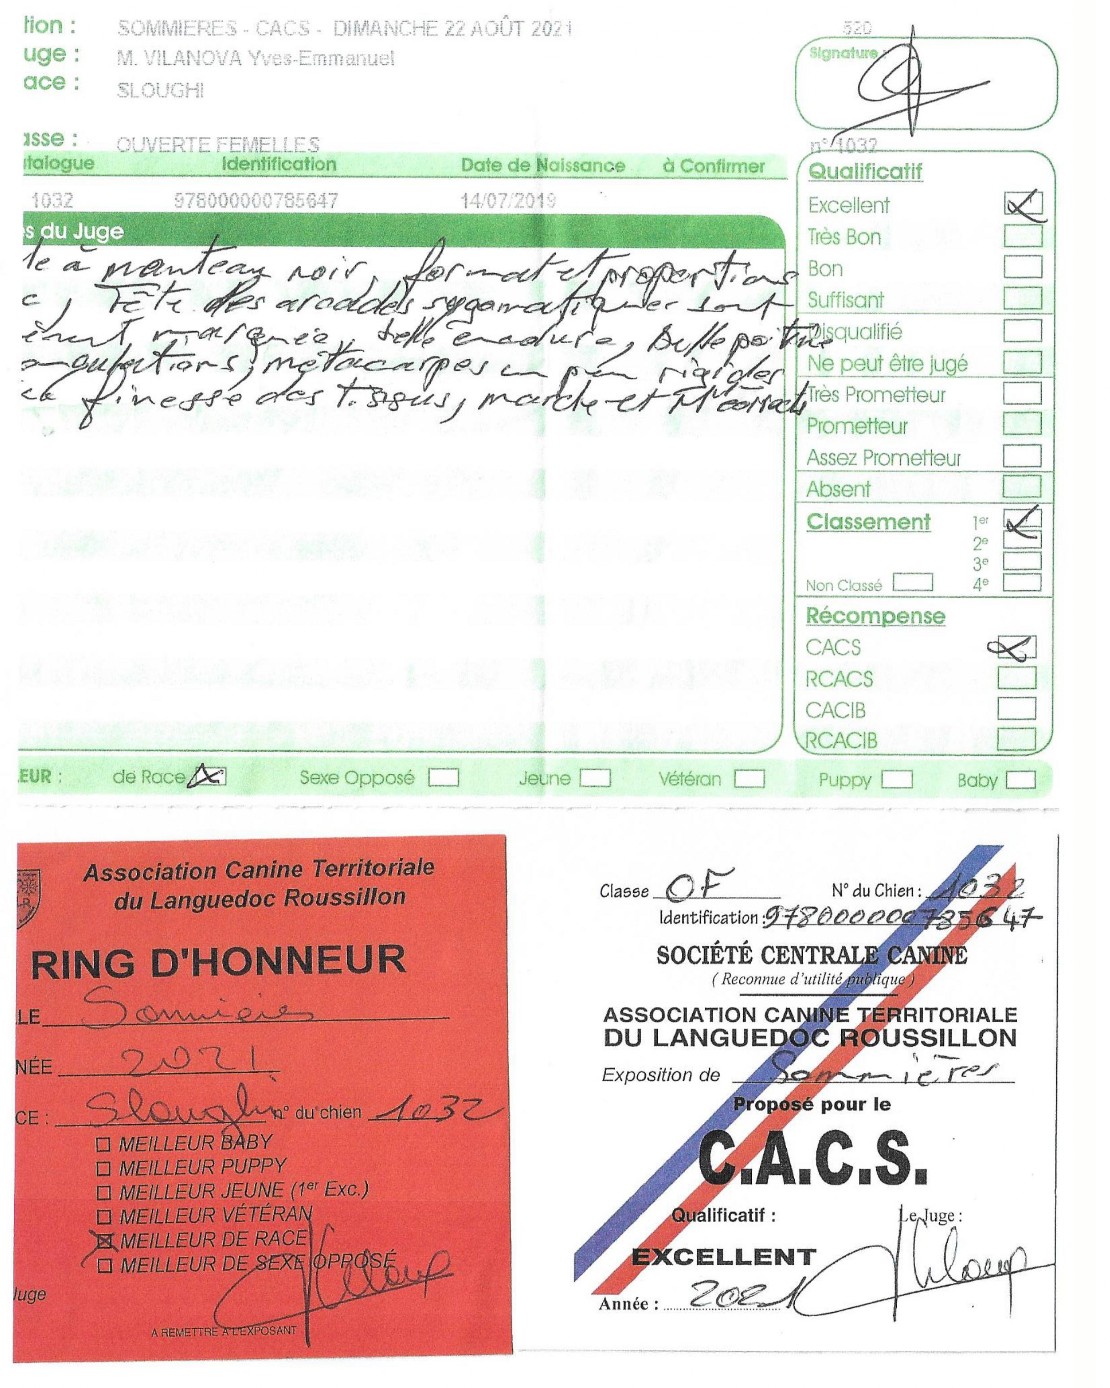 tion : SOMMIERES - CACS - DIMANCHE 22 AOÛT 2021
520
uge : M. VILANOVA Yves-Emmanuel
ace : SLOUGHI
Signature :
asse : OUVERTE FEMELLES
n° 1032
talogue Identification Date de Naissance à Confirmer
1032 978000000785647 14/07/2019
s du Juge
te à manteau noir, format et proportions
c, Tête des arcades zygomatiques sont
ément marquée, belle encolure, belle poitrine
angulations, métacarpes un peu rigides
finesse des tissus, marche et
Qualificatif
Excellent
Très Bon
Bon
Suffisant
Disqualifié
Ne peut être jugé
Très Prometteur
Prometteur
Assez Prometteur
Absent
Classement 1er
2e
3e
Non Classé 4e
Récompense
CACS
RCACS
CACIB
RCACIB
EUR : de Race Sexe Opposé Jeune Vétéran Puppy Baby
Association Canine Territoriale
du Languedoc Roussillon
RING D'HONNEUR
LE Sommières
NÉE 2021
CE : Sloughi n° du chien 1032
MEILLEUR BABY
MEILLEUR PUPPY
MEILLEUR JEUNE (1er Exc.)
MEILLEUR VÉTÉRAN
MEILLEUR DE RACE
MEILLEUR DE SEXE OPPOSÉ
Juge
A REMETTRE A L'EXPOSANT
Classe OF N° du Chien : 1032
Identification : 978000000785647
SOCIÉTÉ CENTRALE CANINE
( Reconnue d'utilité publique )
ASSOCIATION CANINE TERRITORIALE
DU LANGUEDOC ROUSSILLON
Exposition de Sommières
Proposé pour le
C.A.C.S.
Qualificatif : Le Juge :
EXCELLENT
Année : 2021